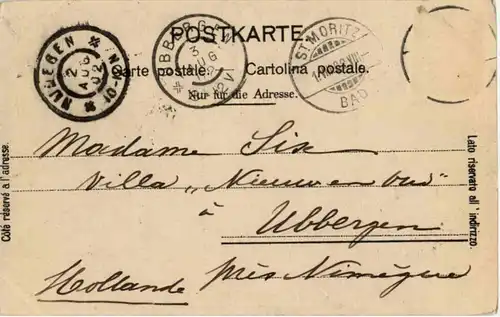 POSTKARTE.
Carte postale. Cartolina postale.
Nur für die Adresse.
ST MORITZ
BAD
2
AUG
3
AUG
Côté réservé à l'adresse.
Lato riservato all' indirizzo.
Madame Six
Villa „Nieuw en Oud"
à
Ubbergen
près Nimègue
Hollande